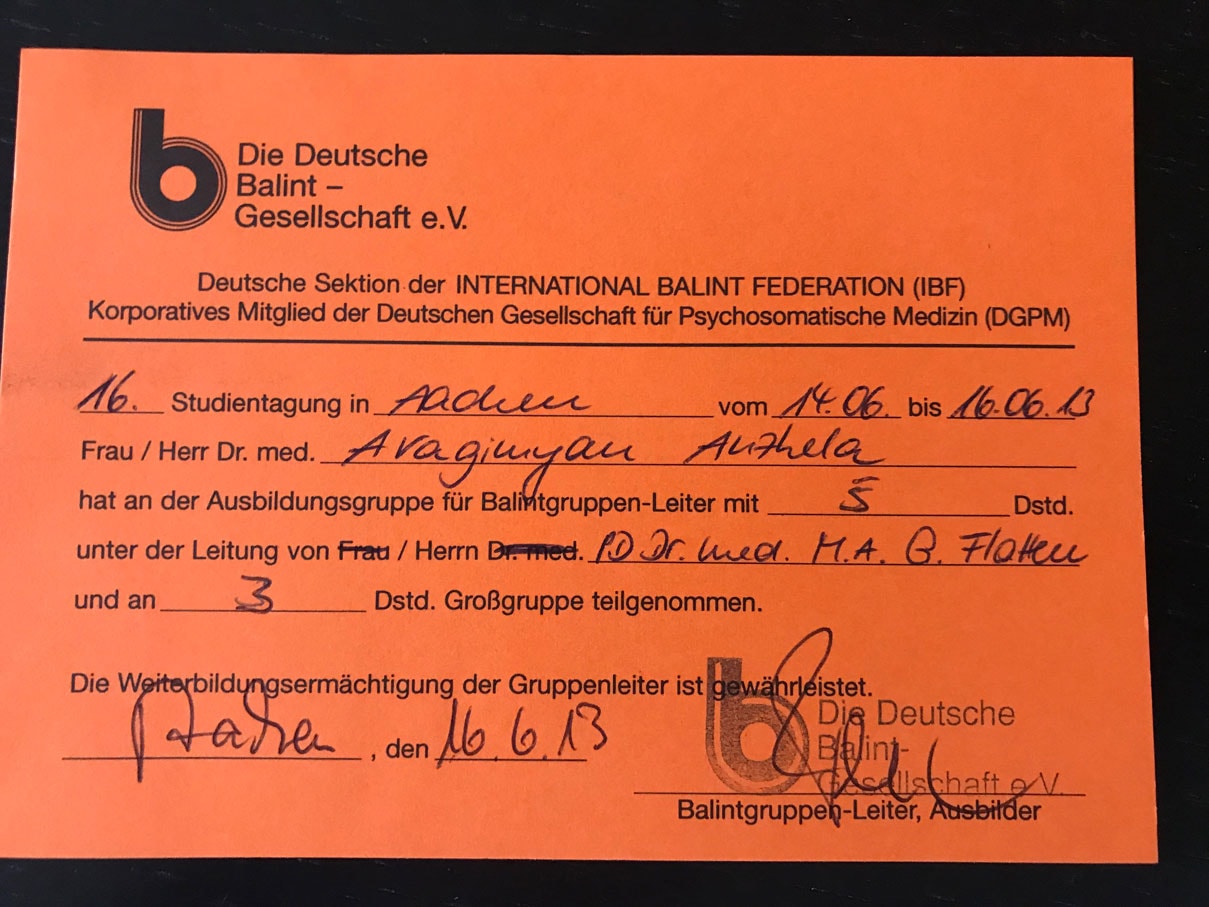 Die Deutsche
Balint –
Gesellschaft e.V.
Deutsche Sektion der INTERNATIONAL BALINT FEDERATION (IBF)
Korporatives Mitglied der Deutschen Gesellschaft für Psychosomatische Medizin (DGPM)
16. Studientagung in Aachen vom 14.06. bis 16.06.13
Frau / Herr Dr. med. Araginyan Anzhela
hat an der Ausbildungsgruppe für Balintgruppen-Leiter mit 5 Dstd.
unter der Leitung von Frau / Herrn Dr. med. PD Dr. med. M.A. G. Flatten
und an 3 Dstd. Großgruppe teilgenommen.
Die Weiterbildungsermächtigung der Gruppenleiter ist gewährleistet.
Aachen, den 16.6.13
Die Deutsche
Balint-
Gesellschaft e.V.
Balintgruppen-Leiter, Ausbilder